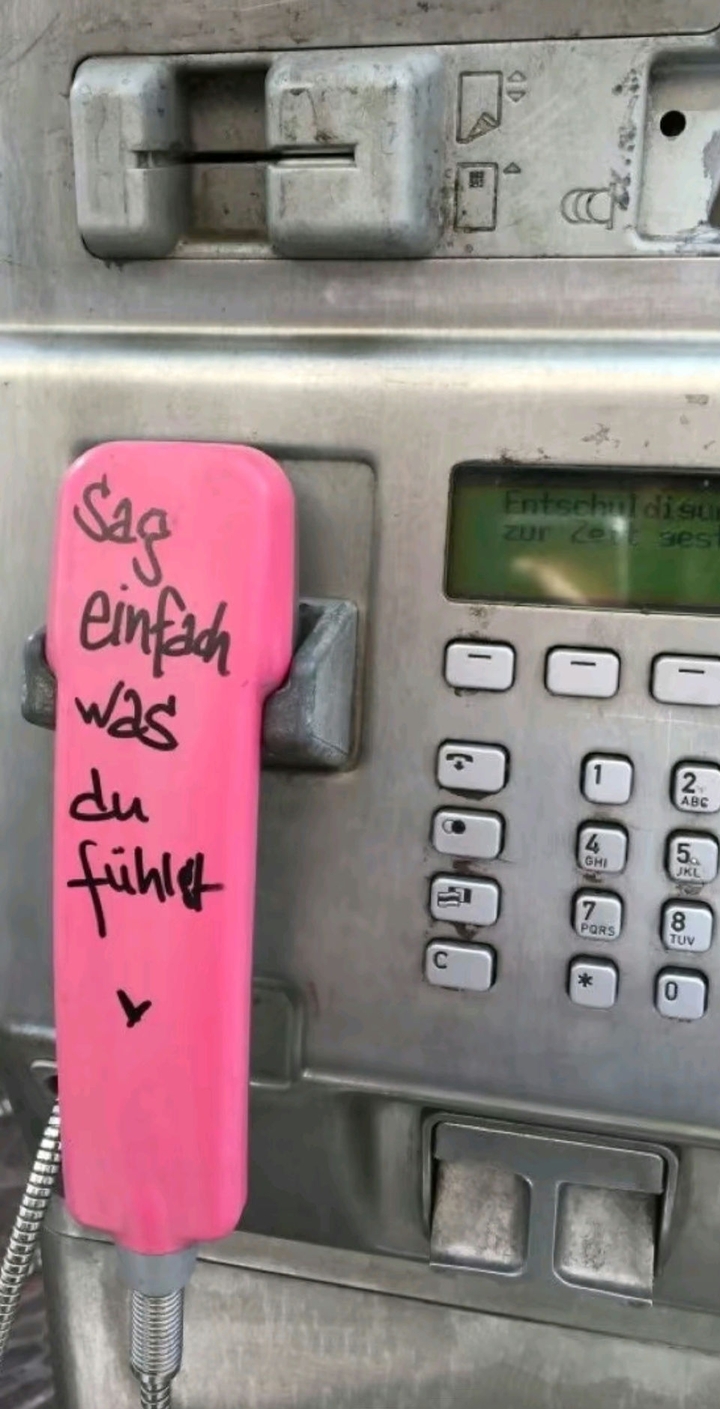 Sag
einfach
was
du
fühlst
Entschuldigu
zur Zeit gest
1
2
ABC
4
GHI
5
JKL
7
PQRS
8
TUV
C
*
0